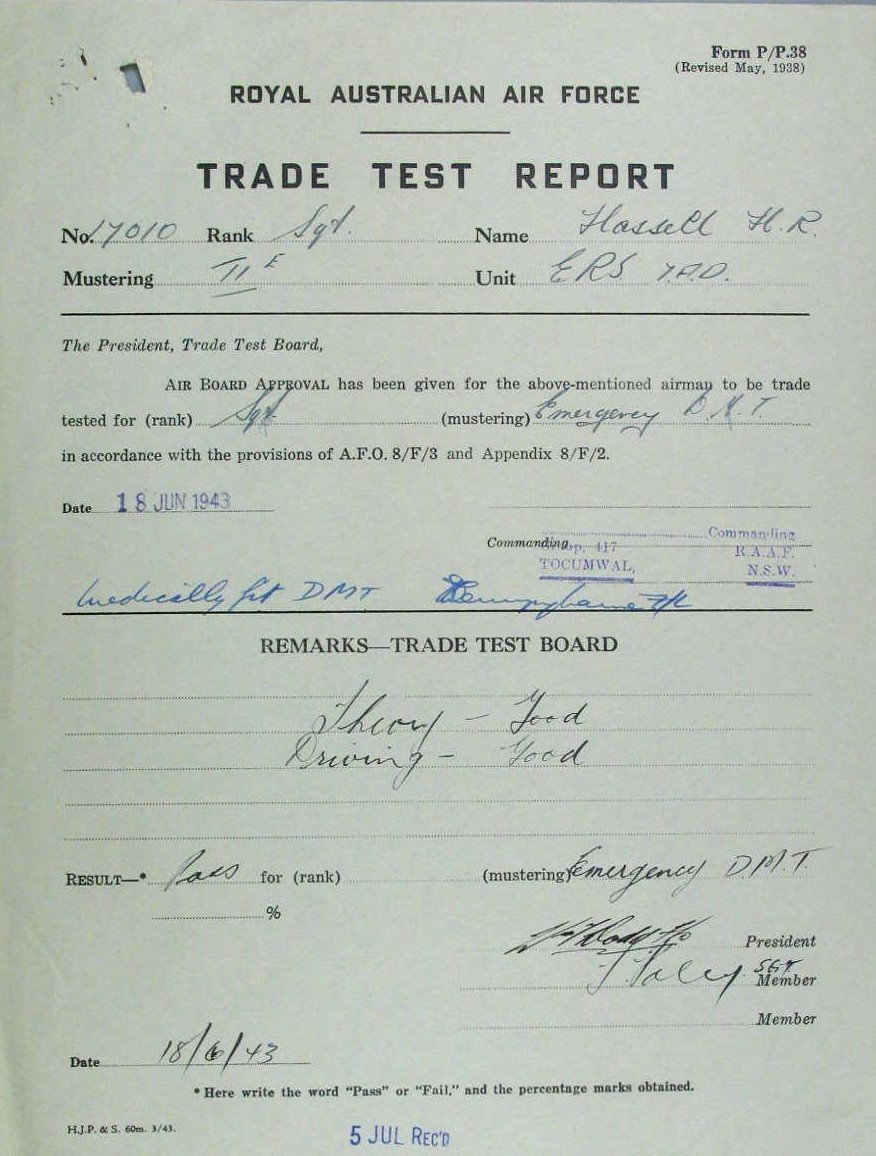 Form P/P.38
(Revised May, 1938)
ROYAL AUSTRALIAN AIR FORCE
TRADE TEST REPORT
No. 17010 Rank Sgt. Name Hassell H.R.
Mustering II E Unit ERS 7.A.D.
The President, Trade Test Board,
AIR BOARD APPROVAL has been given for the above-mentioned airman to be trade
tested for (rank) Sgt (mustering) Emergency D.M.T.
in accordance with the provisions of A.F.O. 8/F/3 and Appendix 8/F/2.
Date 18 JUN 1943
Commanding
Commanding
417 R.A.A.F.
TOCUMWAL, N.S.W.
medically fit DMT
REMARKS—TRADE TEST BOARD
Theory - Good
Driving - Good
RESULT—* Pass for (rank) (mustering) Emergency D.M.T.
%
President
Sgt
Member
Member
Date 18/6/43
* Here write the word "Pass" or "Fail," and the percentage marks obtained.
H.J.P. & S. 60m. 3/43.
5 JUL REC'D